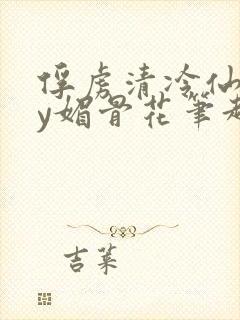 俘虏清冷仙
y媚骨花笔趣
吉莱